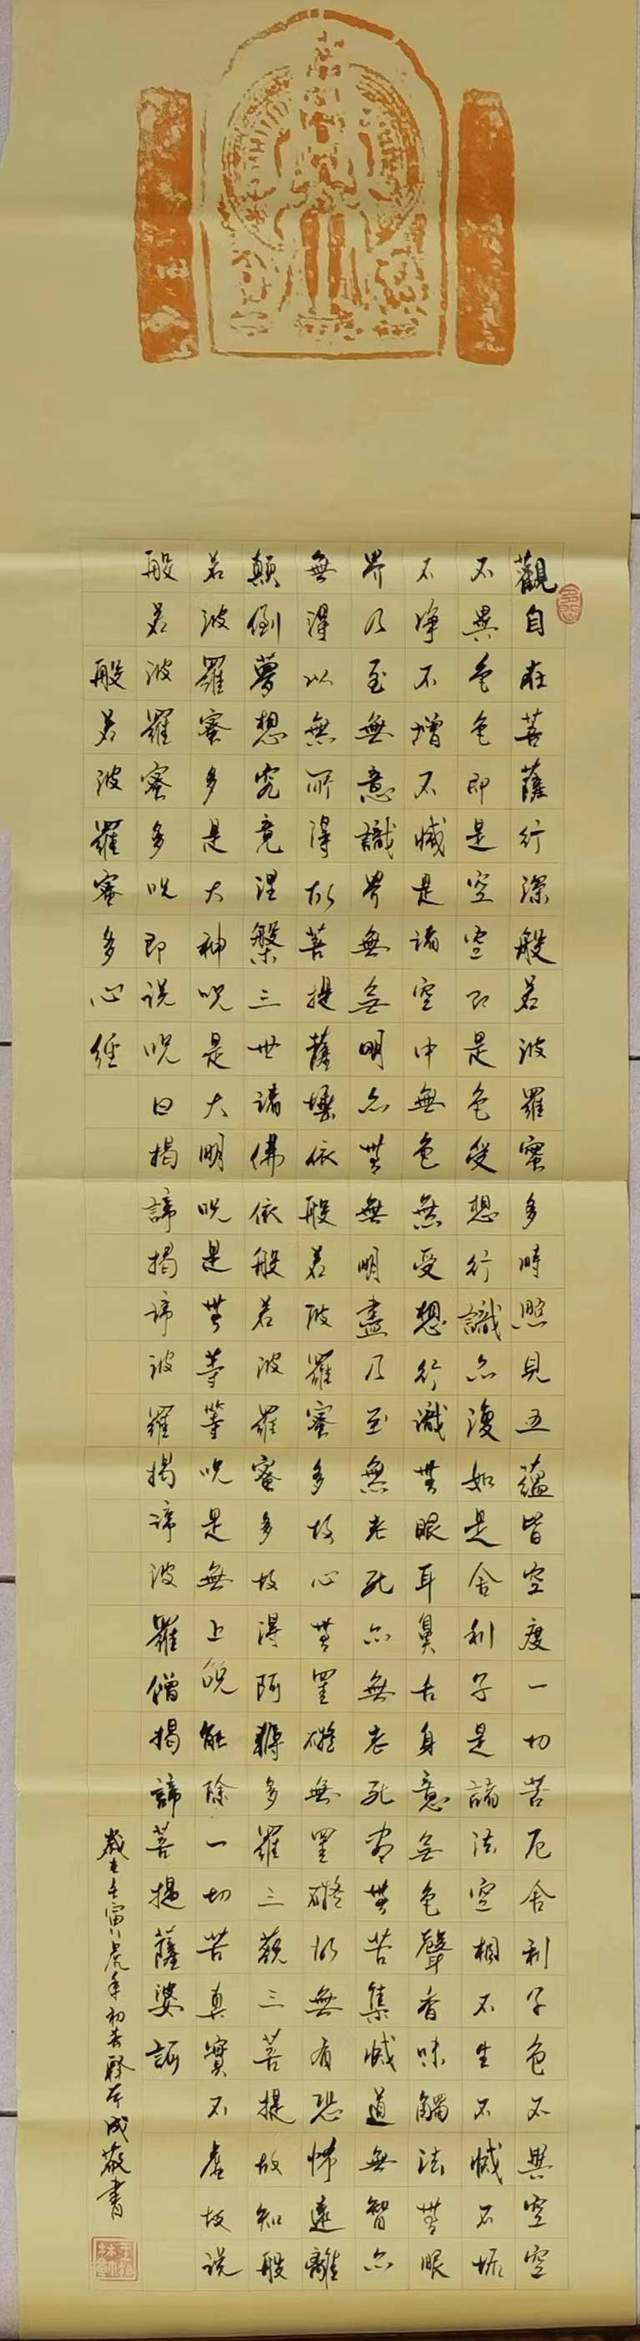 觀自在菩薩行深般若波羅蜜多時照見五蘊皆空度一切苦厄舍利子色不異空空
不異色色即是空空即是色受想行識亦復如是舍利子是諸法空相不生不滅不垢
不淨不增不滅是諸空中無色無受想行識無眼耳鼻舌身意無色聲香味觸法無眼
界乃至無意識界無無明亦無無明盡乃至無老死亦無老死盡無苦集滅道無智亦
無得以無所得故菩提薩埵依般若波羅蜜多故心無罣礙無罣礙故無有恐怖遠離
顛倒夢想究竟涅槃三世諸佛依般若波羅蜜多故得阿耨多羅三藐三菩提故知般
若波羅蜜多是大神呪是大明呪是無等等呪是無上呪能除一切苦真實不虛故說
般若波羅蜜多呪即說呪曰揭諦揭諦波羅揭諦波羅僧揭諦菩提薩婆訶
般若波羅蜜多心經
歲在壬寅虎年初春釋本成敬書